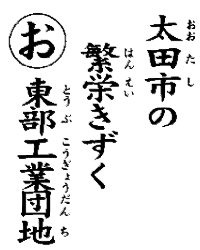 太田市の
おおたし
繁栄きずく
はんえい
お
東部工業団地
とうぶこうぎょうだんち